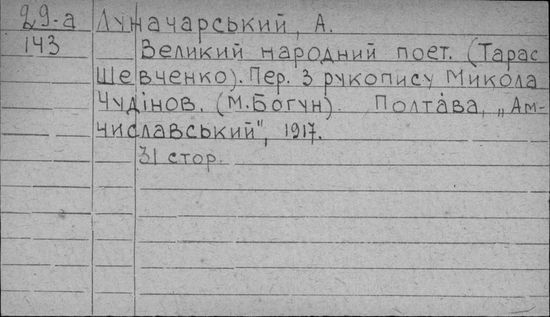 29-а Луначарський, А.
143 Великий народний поет. (Тарас
Шевченко). Пер. З рукопису Микола
Чудінов. (М. Богун). Полтава, „Ам-
числавський", 1917.
31 стор.